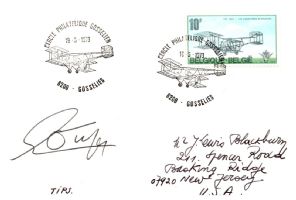 CERCLE PHILATELIQUE GOSSELIES
19-5-1973
6200 - GOSSELIES
10F
BELGIQUE-BELGIË
CERCLE PHILATELIQUE GOSSELIES
19-5-1973
6200 - GOSSELIES
Mr Lewis Blackburn
211 Spencer Road
Basking Ridge
07920 New Jersey
U.S.A.
TIPS.